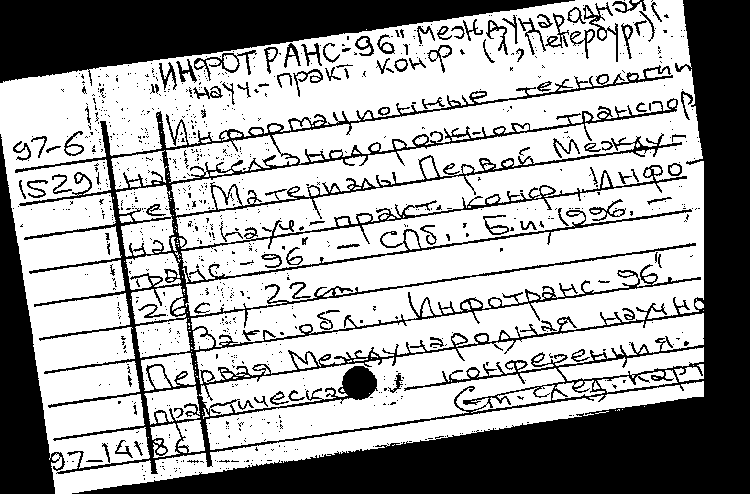 "ИНФОТРАНС-96", международная
науч.-практ. конф. (1, Петербург).
97-6 Информационные технологии
1529 на железнодорожном транспор
те. Материалы Первой Между-
нар. науч.-практ. конф., "Инфо-
транс-96". - СПб.: Б.и., 1996. -
26с.; 22см.
Загл. обл.: "Инфотранс-96".
Первая Международная научно
практическая конференция.
См. след. карт
97-14186